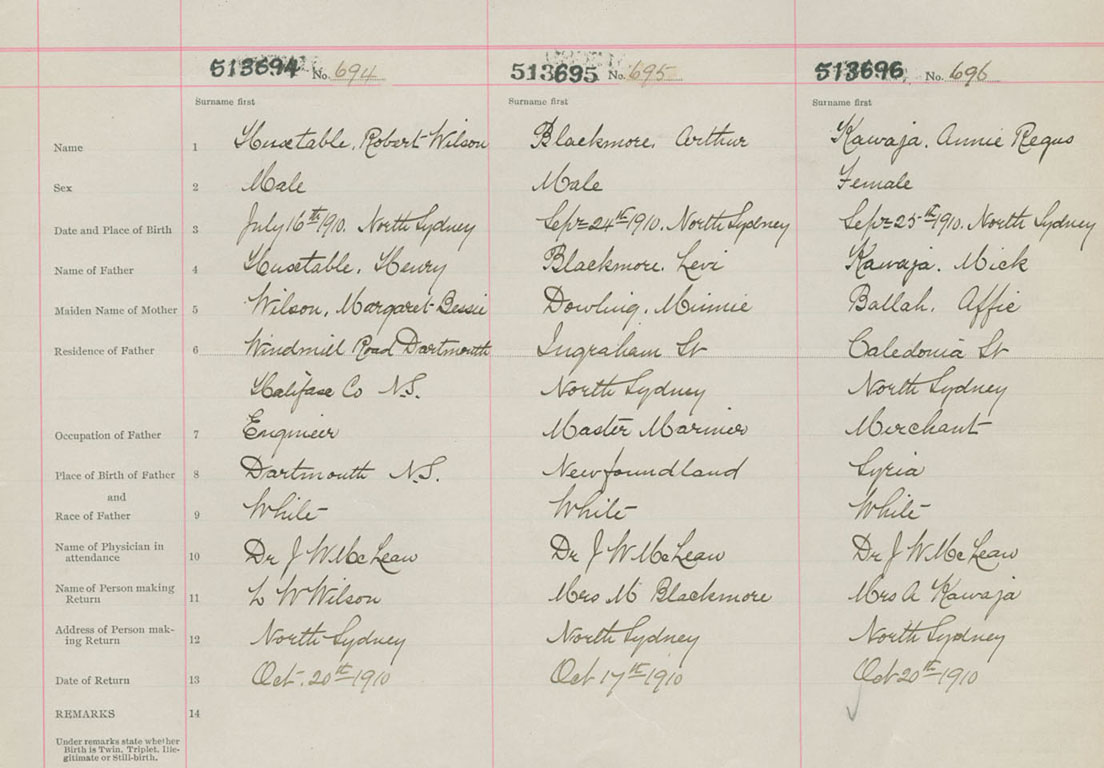 513694 No. 694 513695 No. 695 513696 No. 696
Surname first Surname first Surname first
Name 1 Huxtable, Robert Wilson Blackmore, Arthur Kawaja, Annie Regus
Sex 2 Male Male Female
Date and Place of Birth 3 July 16th 1910. North Sydney Sepr 24th 1910. North Sydney Sepr 25th 1910. North Sydney
Name of Father 4 Huxtable, Henry Blackmore, Levi Kawaja, Mick
Maiden Name of Mother 5 Wilson, Margaret Bessie Dowling, Minnie Ballah, Affie
Residence of Father 6 Windmill Road Dartmouth Ingraham St Caledonia St
Halifax Co N.S. North Sydney North Sydney
Occupation of Father 7 Engineer Master Mariner Merchant
Place of Birth of Father 8 Dartmouth N.S. Newfoundland Syria
and
Race of Father 9 White White White
Name of Physician in
attendance 10 Dr J W McLean Dr J W McLean Dr J W McLean
Name of Person making
Return 11 L W Wilson Mrs M Blackmore Mrs A Kawaja
Address of Person mak-
ing Return 12 North Sydney North Sydney North Sydney
Date of Return 13 Oct. 20th 1910 Oct 17th 1910 Oct 20th 1910
REMARKS 14
Under remarks state whether
Birth is Twin, Triplet, Ille-
gitimate or Still-birth.